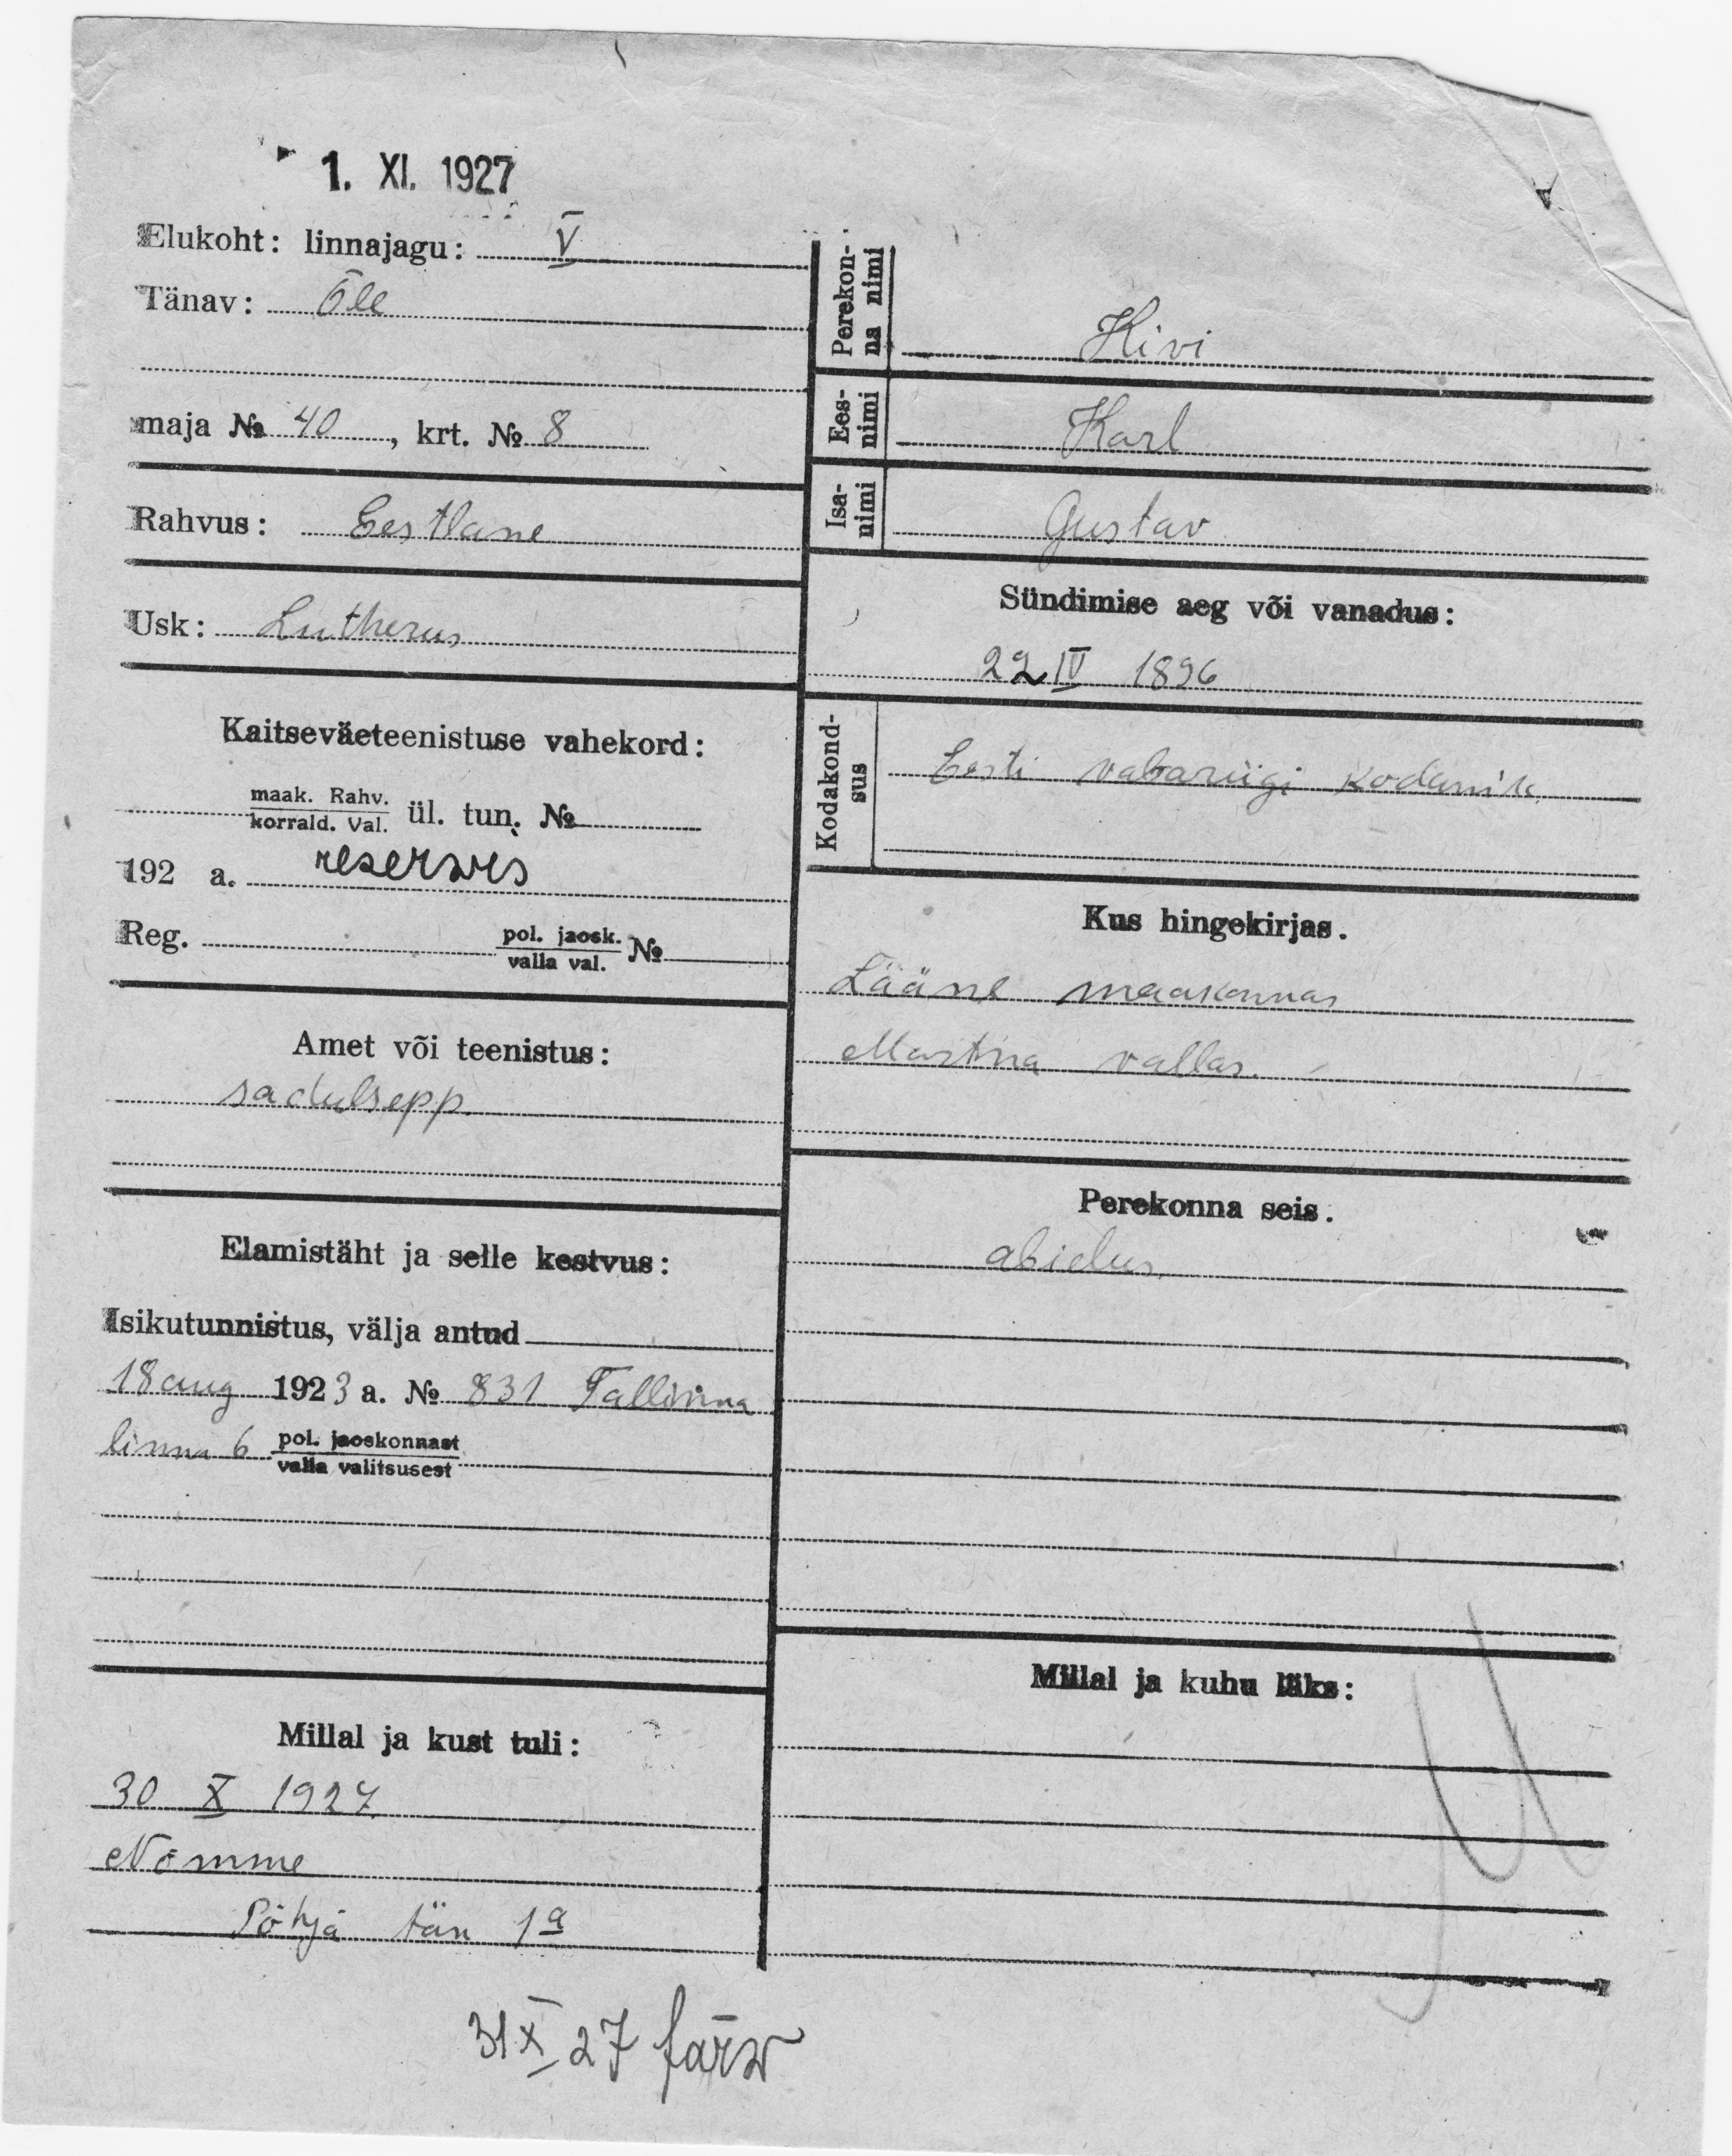 1. XI. 1927
Elukoht: linnajagu: V
Tänav: Õle
maja № 40, krt. № 8
Rahvus: Eestlane
Usk: Lutherus
Kaitseväeteenistuse vahekord:
maak. Rahv.
korrald. Val. ül. tun. №
192 a. reserves
Reg. pol. jaosk. №
valla val.
Amet või teenistus:
sadulsepp.
Elamistäht ja selle kestvus:
Isikutunnistus, välja antud
18 aug 1923 a. № 831 Tallinna
linna 6 pol. jaoskonnast
valla valitsusest
Millal ja kust tuli:
30 X 1927.
Nõmme
Põhja tän 1a
Perekon-
na nimi
Kivi
Ees-
nimi
Karl
Isa-
nimi
Gustav
Sündimise aeg või vanadus:
22 IV 1896
Kodakond-
sus
Eesti vabariigi kodanik
Kus hingekirjas.
Lääne maakonnas
Martna vallas.
Perekonna seis.
abielus.
Millal ja kuhu läks:
31 X 27